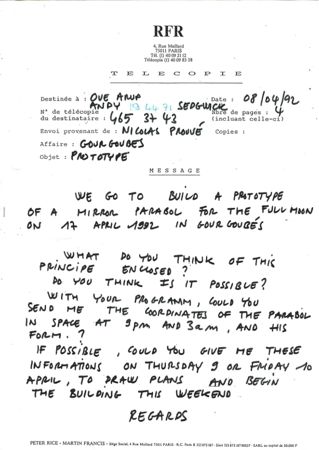 RFR
4, Rue Maillard
75011 PARIS
Tél. (1) 40 09 21 12
Télécopie (1) 40 09 83 38
TELECOPIE
Destinée à : OVE ARUP Date : 08/04/92
ANDY SEDGWICK
N° de télécopie du destinataire : 465 37 43 Nbre de pages : 4 (incluant celle-ci)
Envoi provenant de : NICOLAS PROUVÉ Copies :
Affaire : GOURGOUBÈS
Objet : PROTOTYPE
MESSAGE
WE GO TO BUILD A PROTOTYPE
OF A MIRROR PARABOL FOR THE FULL MOON
ON 17 APRIL 1992 IN GOURGOUBÈS
WHAT DO YOU THINK OF THIS
PRINCIPE ENCLOSED ?
DO YOU THINK IS IT POSSIBLE?
WITH YOUR PROGRAMM, COULD YOU
SEND ME THE COORDINATES OF THE PARABOL
IN SPACE AT 9pm AND 3am, AND HIS
FORM. ?
IF POSSIBLE, COULD YOU GIVE ME THESE
INFORMATIONS ON THURSDAY 9 OR FRIDAY 10
APRIL, TO DRAW PLANS AND BEGIN
THE BUILDING THIS WEEKEND
REGARDS
PETER RICE - MARTIN FRANCIS - Siège Social, 4 Rue Maillard 75011 PARIS